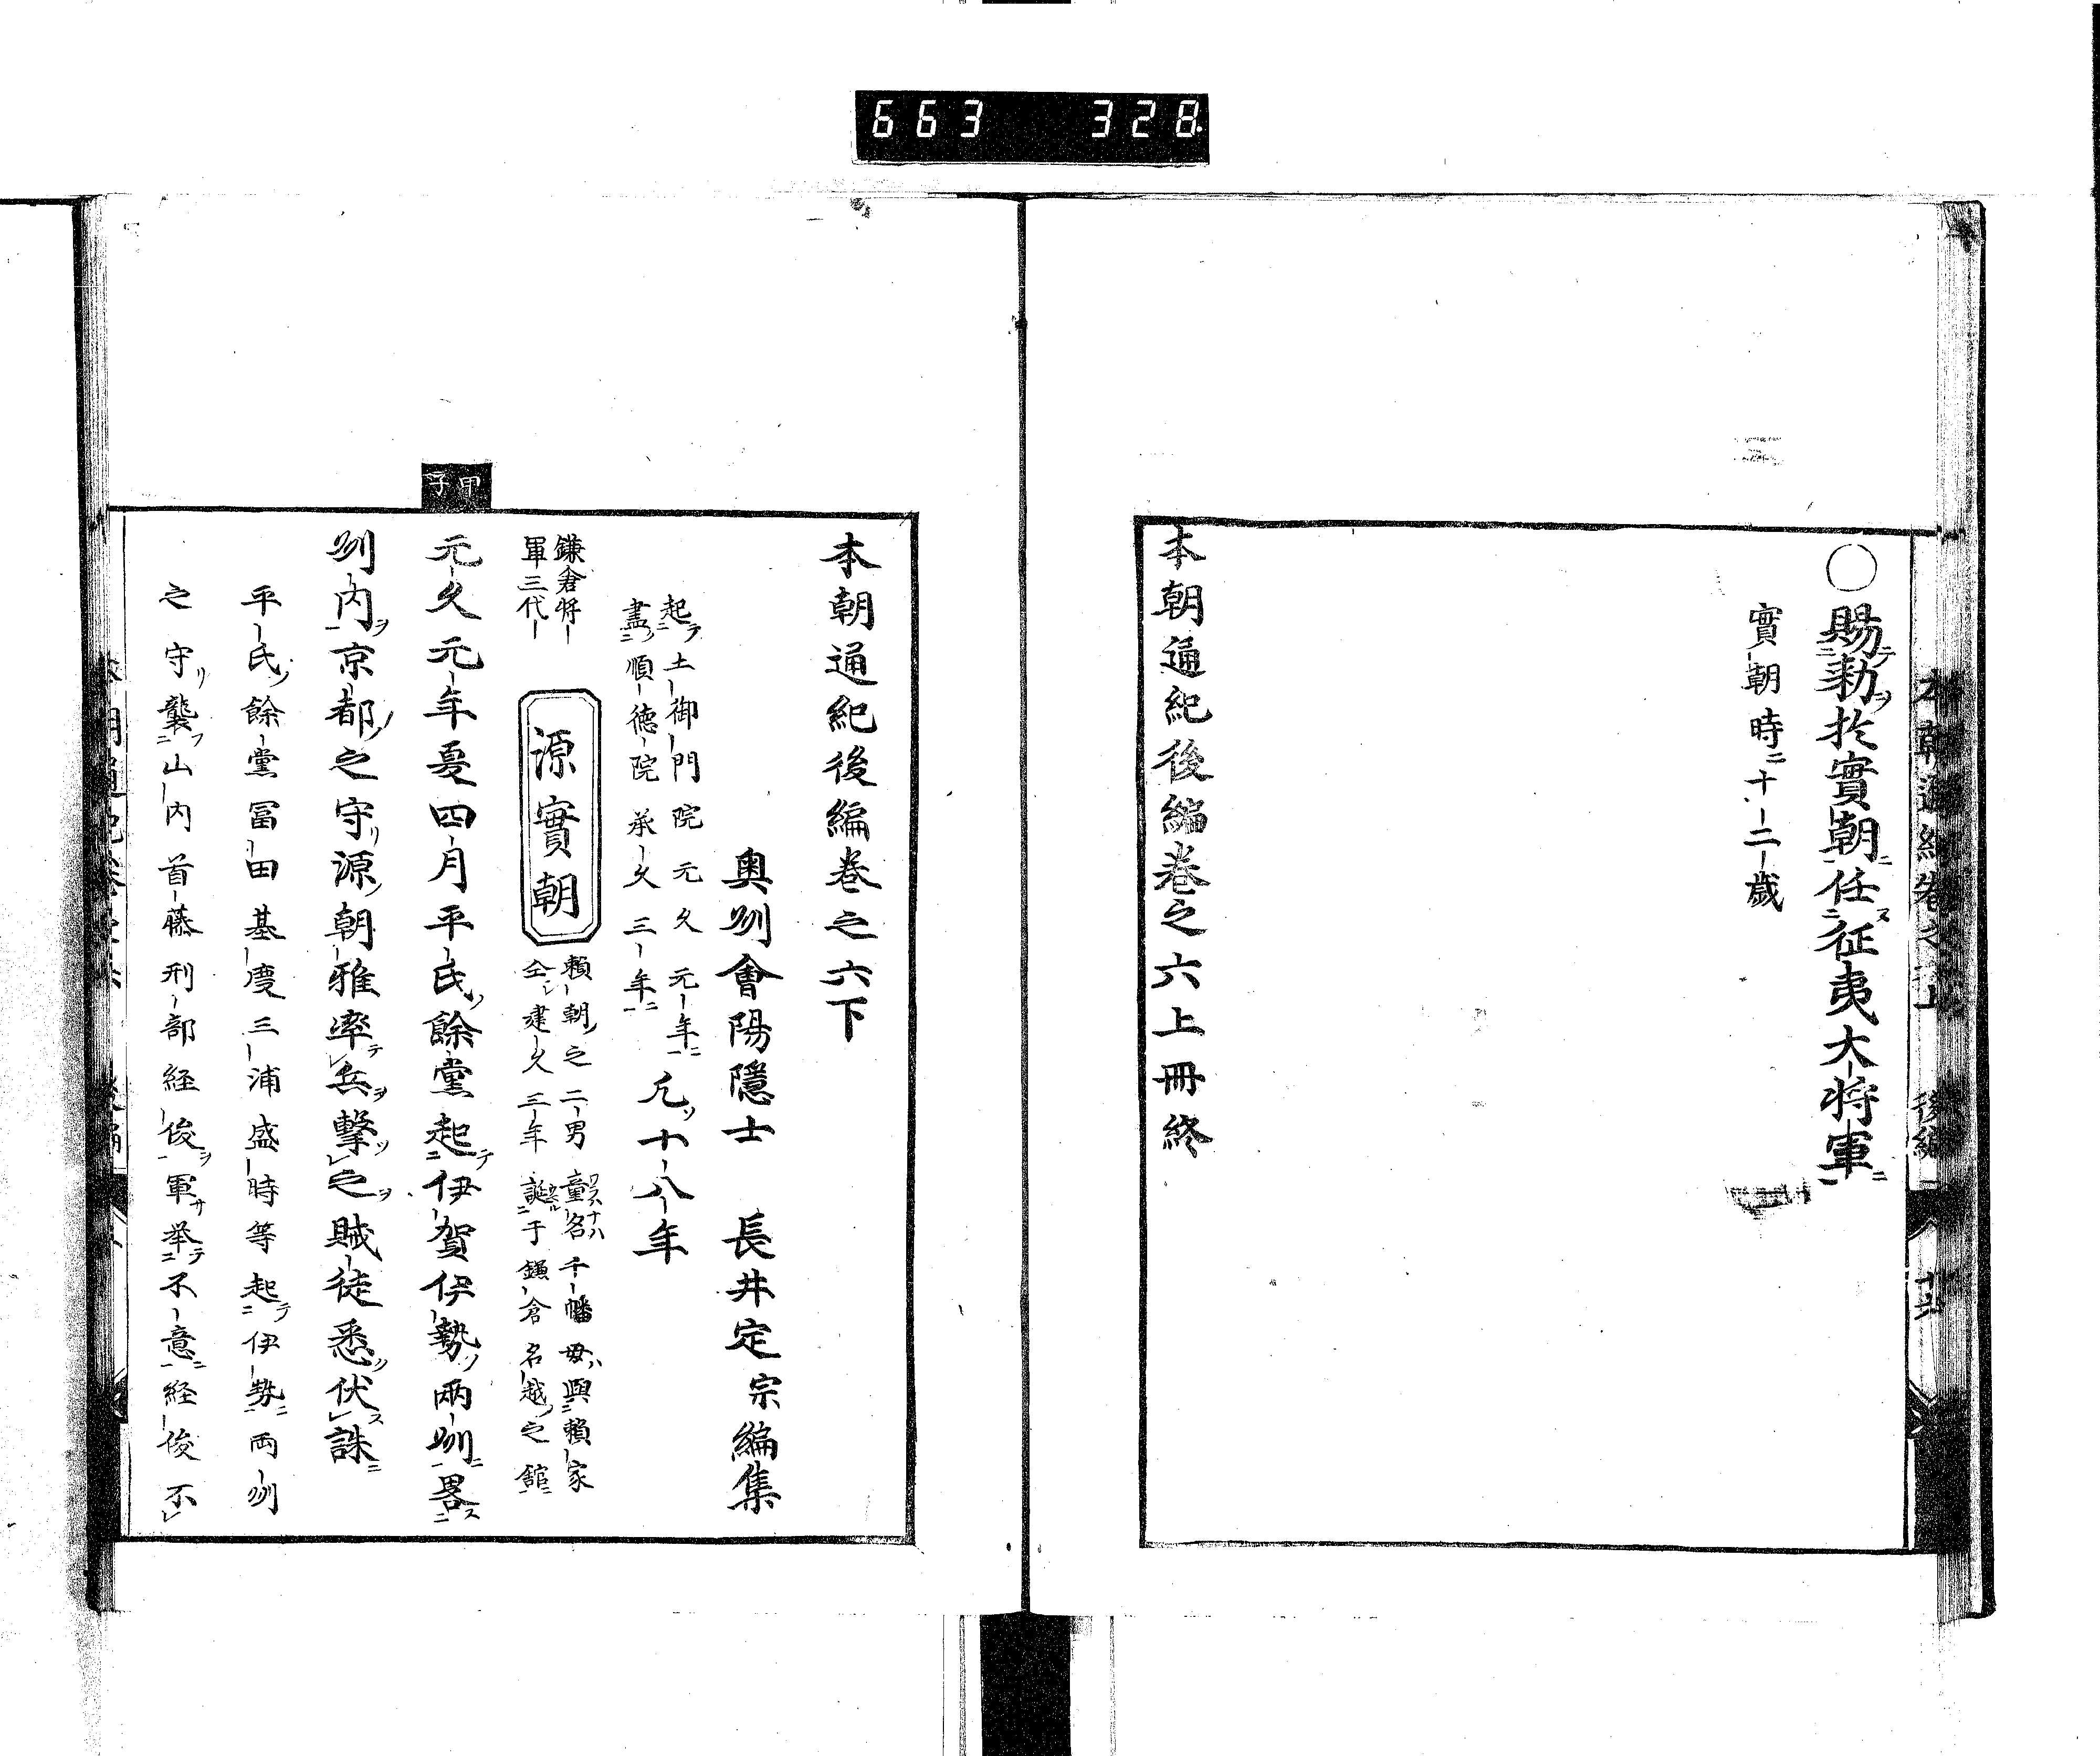 663 328
本朝通紀卷之六上 後編 十六
○賜勅於實朝任征夷大將軍
實朝時十二歲
本朝通紀後編卷之六上冊終
本朝通紀後編卷之六下
奥州會陽隱士 長井定宗編集
起土御門院元久元年
盡順德院承久三年
凡十八年
鎌倉將
軍三代
源實朝
賴朝之二男童名千幡母與賴家
仝建久三年誕于鎌倉名越之館
甲子
元久元年夏四月平氏餘黨起伊賀伊勢兩州畧
州内京都之守源朝雅率兵擊之賊徒悉伏誅
平氏餘黨冨田基度三浦盛時等起伊勢両州
之守襲山内首藤刑部経俊軍挙不意経俊不